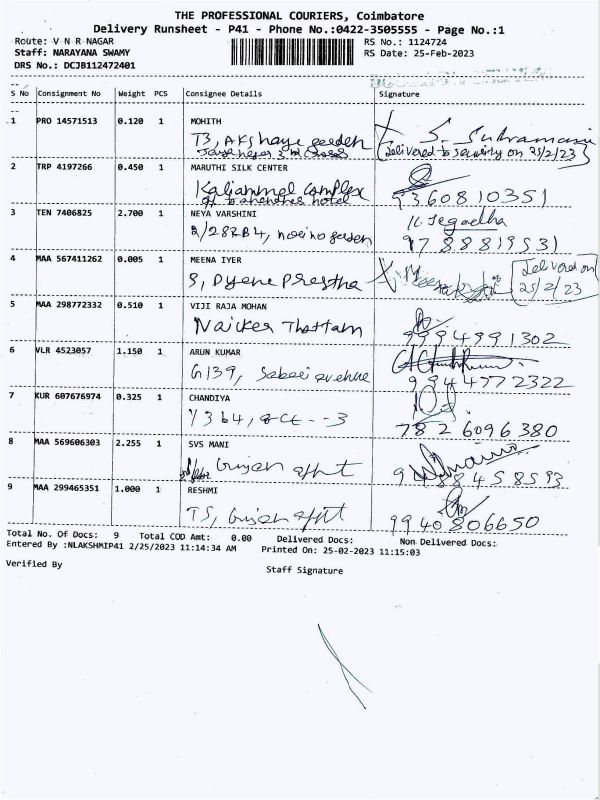 THE PROFESSIONAL COURIERS, Coimbatore
Delivery Runsheet - P41 - Phone No.:0422-3505555 - Page No.:1
Route: V N R NAGAR
RS No.: 1124724
Staff: NARAYANA SWAMY
RS Date: 25-Feb-2023
DRS No.: DCJB112472401
S No Consignment No Weight PCS Consignee Details Signature
1 PRO 14571513 0.120 1 MOHITH
T3, Akshaya garden
S. Subramani
(Delivered to security on 25/2/23)
2 TRP 4197266 0.450 1 MARUTHI SILK CENTER
Kaliammal Complex
hotel
9360810351
3 TEN 7406825 2.700 1 NEYA VARSHINI
garden
K. Jegadha
9788819531
4 MAA 567411262 0.005 1 MEENA IYER
Delivered on
25/2/23
5 MAA 298772332 0.510 1 VIJI RAJA MOHAN
Naicker Thottam
9994991302
6 VLR 4523057 1.150 1 ARUN KUMAR
G139, avenue
9944772322
7 KUR 607676974 0.325 1 CHANDIYA
7826096380
8 MAA 569606303 2.255 1 SVS MANI
9 MAA 299465351 1.000 1 RESHMI
9940806650
Total No. Of Docs: 9 Total COD Amt: 0.00 Delivered Docs: Non Delivered Docs:
Entered By :NLAKSHMIP41 2/25/2023 11:14:34 AM Printed On: 25-02-2023 11:15:03
Verified By
Staff Signature